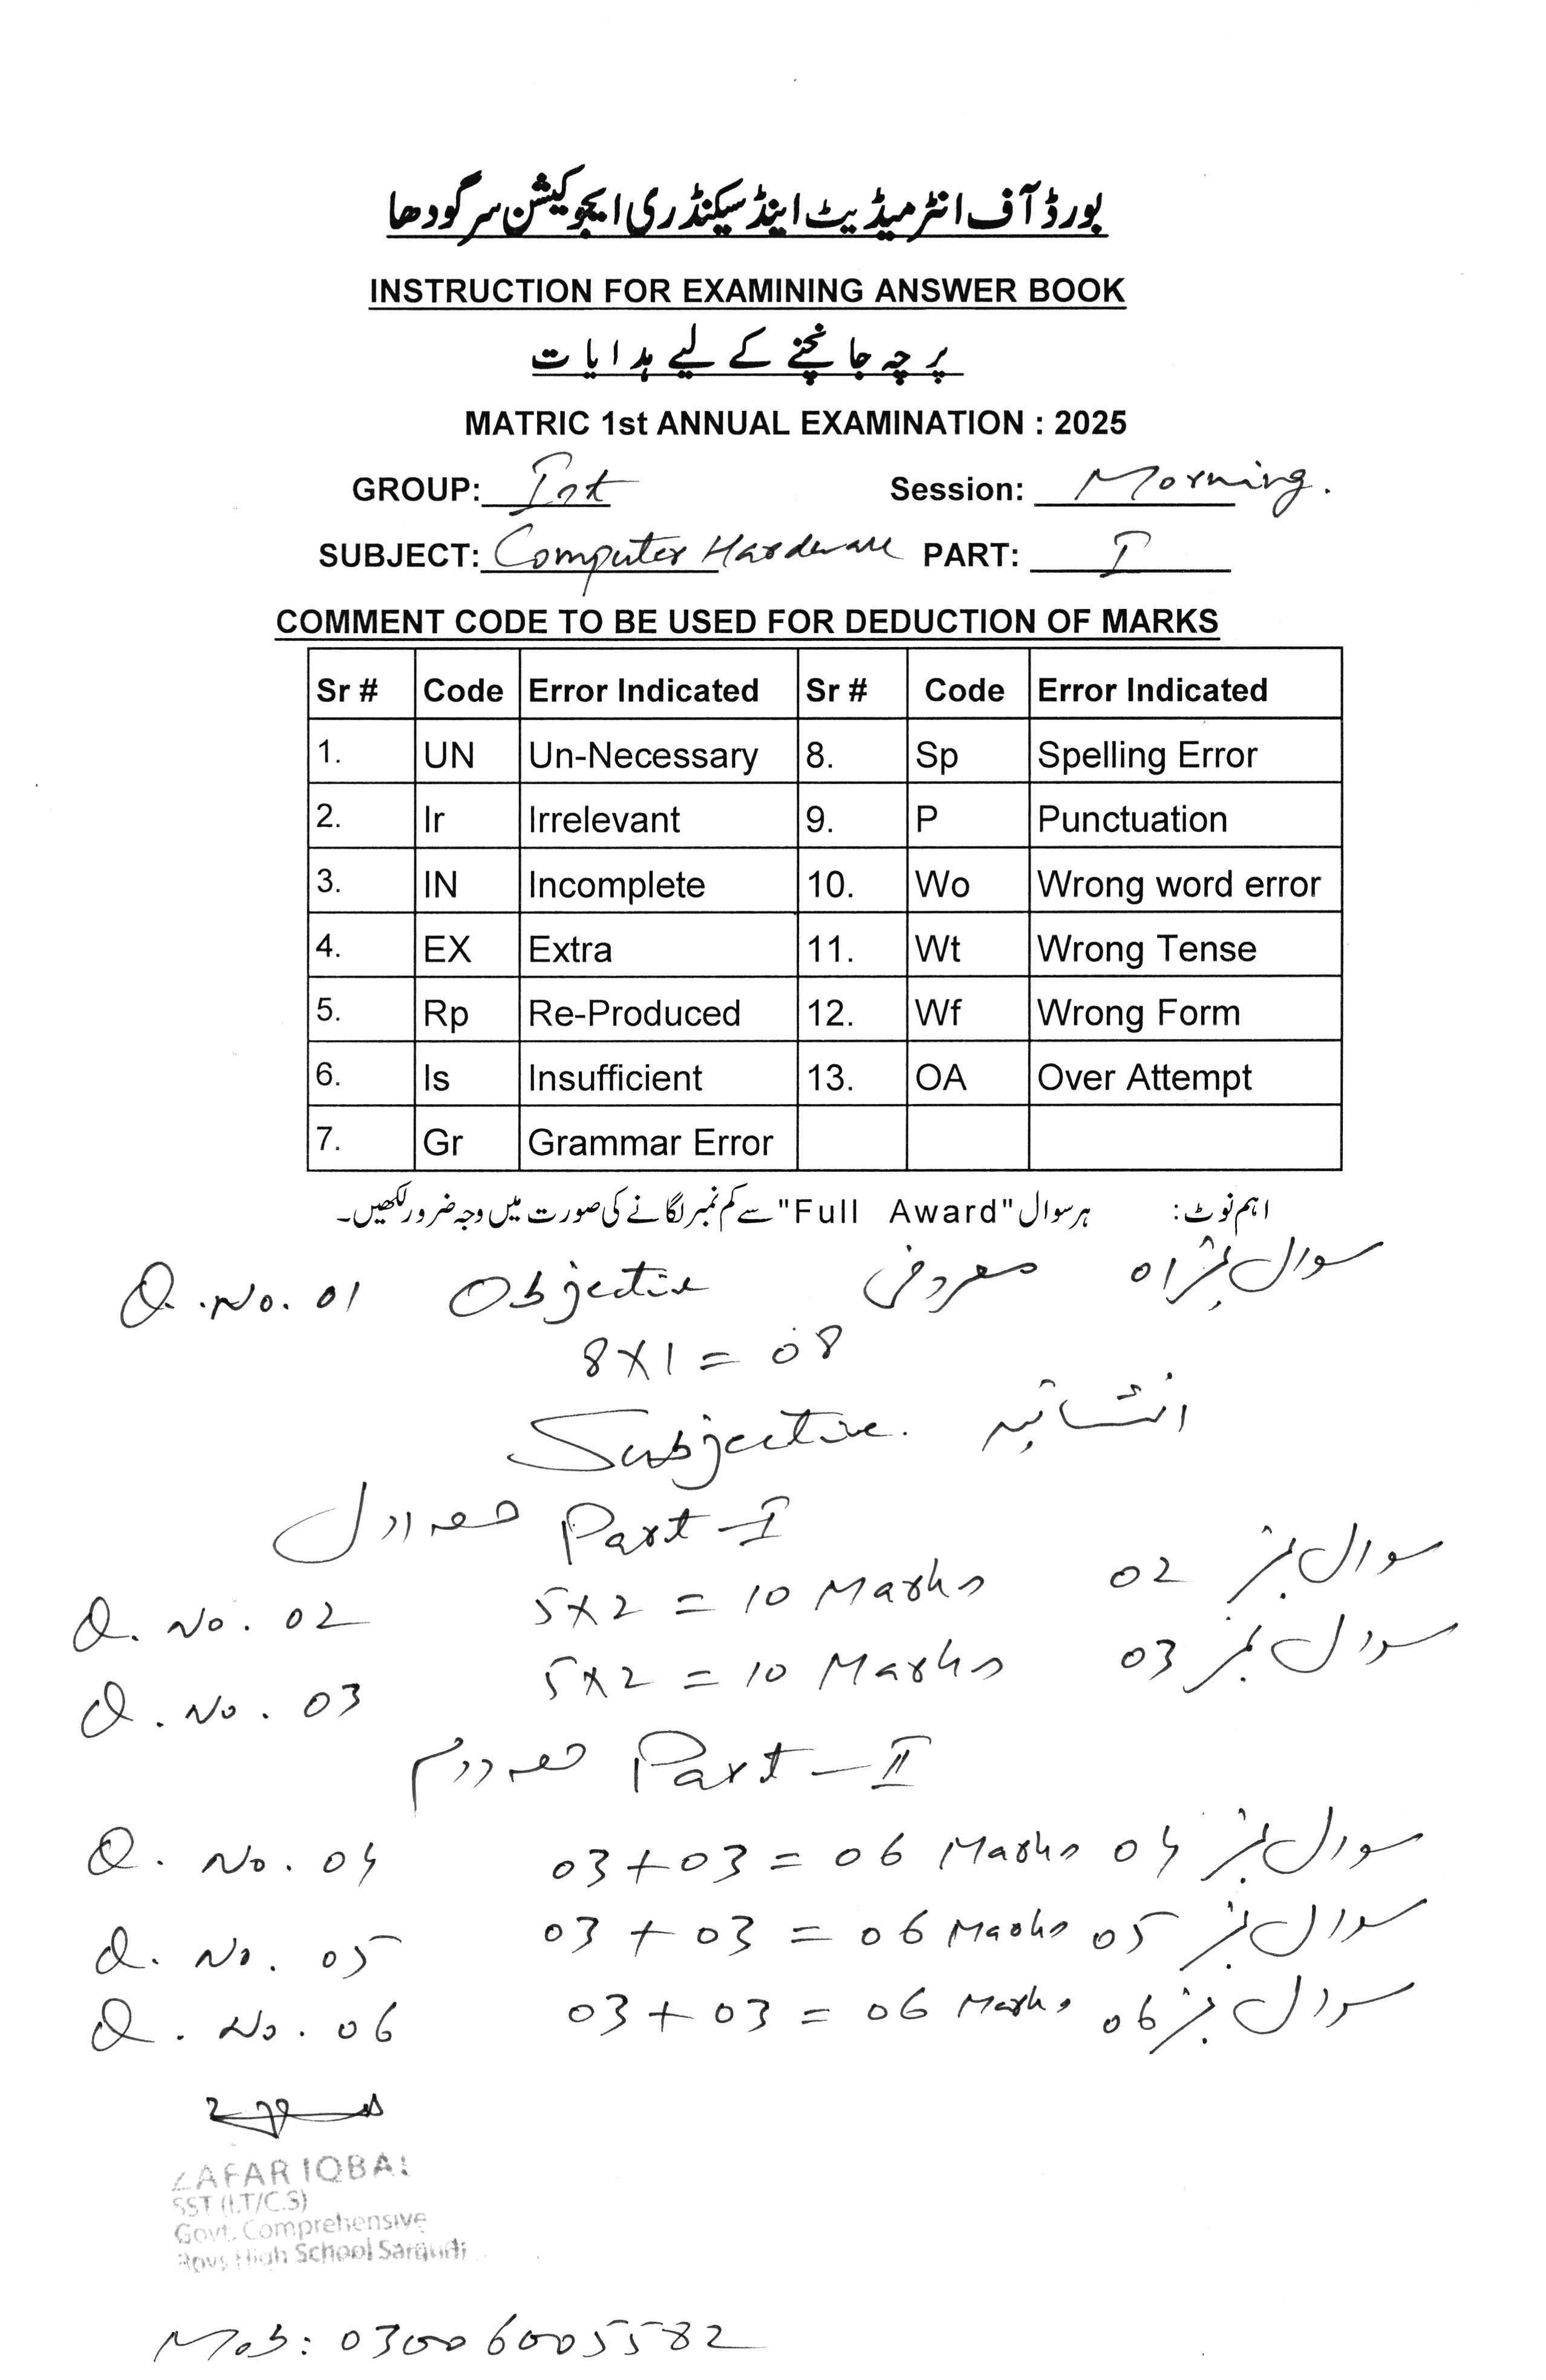 بورڈ آف انٹرمیڈیٹ اینڈ سیکنڈری ایجوکیشن سرگودھا
INSTRUCTION FOR EXAMINING ANSWER BOOK
پرچہ جانچنے کے لیے ہدایات
MATRIC 1st ANNUAL EXAMINATION : 2025
GROUP: Ist Session: Morning.
SUBJECT: Computer Hardware PART: I
COMMENT CODE TO BE USED FOR DEDUCTION OF MARKS
Sr # Code Error Indicated Sr # Code Error Indicated
1. UN Un-Necessary 8. Sp Spelling Error
2. Ir Irrelevant 9. P Punctuation
3. IN Incomplete 10. Wo Wrong word error
4. EX Extra 11. Wt Wrong Tense
5. Rp Re-Produced 12. Wf Wrong Form
6. Is Insufficient 13. OA Over Attempt
7. Gr Grammar Error
اہم نوٹ: ہر سوال "Full Award" سے کم نمبر لگانے کی صورت میں وجہ ضرور لکھیں۔
Q. No. 01 Objective معروضی سوال نمبر 01
8X1 = 08
Subjective. انشائیہ
حصہ اول Part-I
Q. No. 02 5X2 = 10 Marks سوال نمبر 02
Q. No. 03 5X2 = 10 Marks سوال نمبر 03
حصہ دوم Part-II
Q. No. 04 03+03 = 06 Marks سوال نمبر 04
Q. No. 05 03+03 = 06 Marks سوال نمبر 05
Q. No. 06 03+03 = 06 Marks سوال نمبر 06
ZAFAR IQBAL
SST (I.T/C.S)
Govt. Comprehensive
Boys High School
Mob: 03006005582